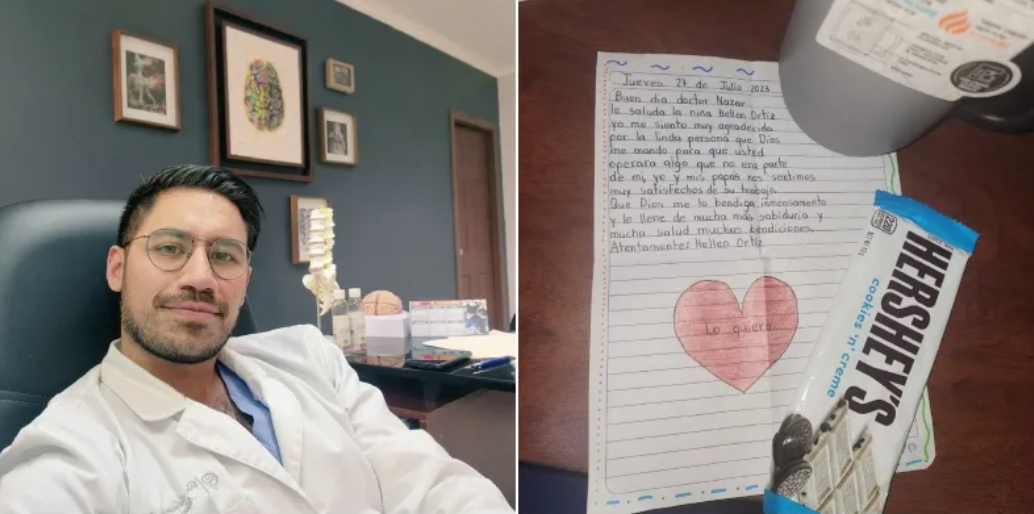 Jueves 27 de Julio 2023
Buen dia doctor Nazar
le saluda la niña Hellen Ortiz
yo me siento muy agradecida
por la linda persona que Dios
me mando para que usted
operara algo que no era parte
de mi, yo y mis papas nos sentimos
muy satisfechos de su trabajo.
Que Dios me lo bendiga inmensamente
y lo llene de mucha más sabiduria y
mucha salud muchas bendiciones.
Atentamente: Hellen Ortiz
Lo quiero
HERSHEY'S
cookies 'n' creme
220